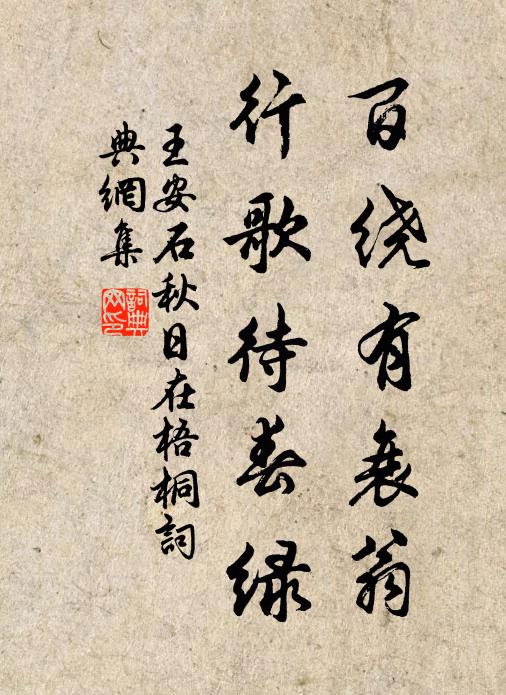 百绕有衰翁
行歌待春绿
王安石秋日在梧桐詞
典網集
詞典
网印